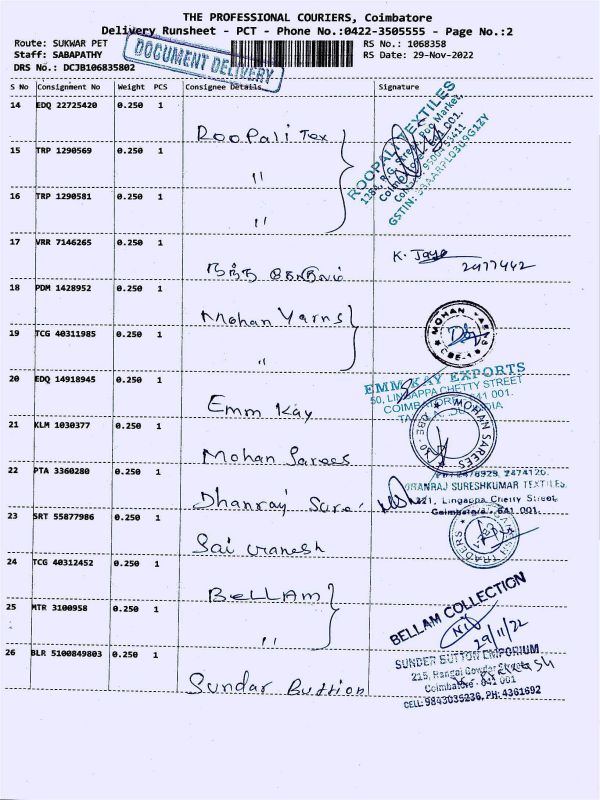 THE PROFESSIONAL COURIERS, Coimbatore
Delivery Runsheet - PCT - Phone No.:0422-3505555 - Page No.:2
Route: SUKWAR PET
RS No.: 1068358
Staff: SABAPATHY
RS Date: 29-Nov-2022
DRS No.: DCJB106835802
DOCUMENT DELIVERY
S No Consignment No Weight PCS Consignee Details Signature
14 EDQ 22725420 0.250 1
Roopali Tex
ROOPALI TEXTILES
15 TRP 1290569 0.250 1
"
16 TRP 1290581 0.250 1
"
17 VRR 7146265 0.250 1
K. Jaya
2477442
18 PDM 1428952 0.250 1
Mohan Yarns
MOHAN
CBE-1
19 TCG 40311985 0.250 1
"
20 EDQ 14918945 0.250 1
Emm Kay
EMM KAY EXPORTS
50, LINGAPPA CHETTY STREET
COIMBATORE 641 001.
21 KLM 1030377 0.250 1
Mohan Sarees
MOHAN SAREES
22 PTA 3360280 0.250 1
Dhanraj Sure
2474120.
DHANRAJ SURESHKUMAR TEXTILES.
221, Lingappa Chetty Street,
Coimbatore - 641 001.
23 SRT 55877986 0.250 1
Sai Vranesh
TRADERS
24 TCG 40312452 0.250 1
BELLAM
BELLAM COLLECTION
29/11/22
25 MTR 3100958 0.250 1
"
26 BLR 5100849803 0.250 1
Sundar Buttion
SUNDER BUTTON EMPORIUM
215, Rangai Gowder Street
Coimbatore - 641 001
CELL: 9843035236, PH: 4361692